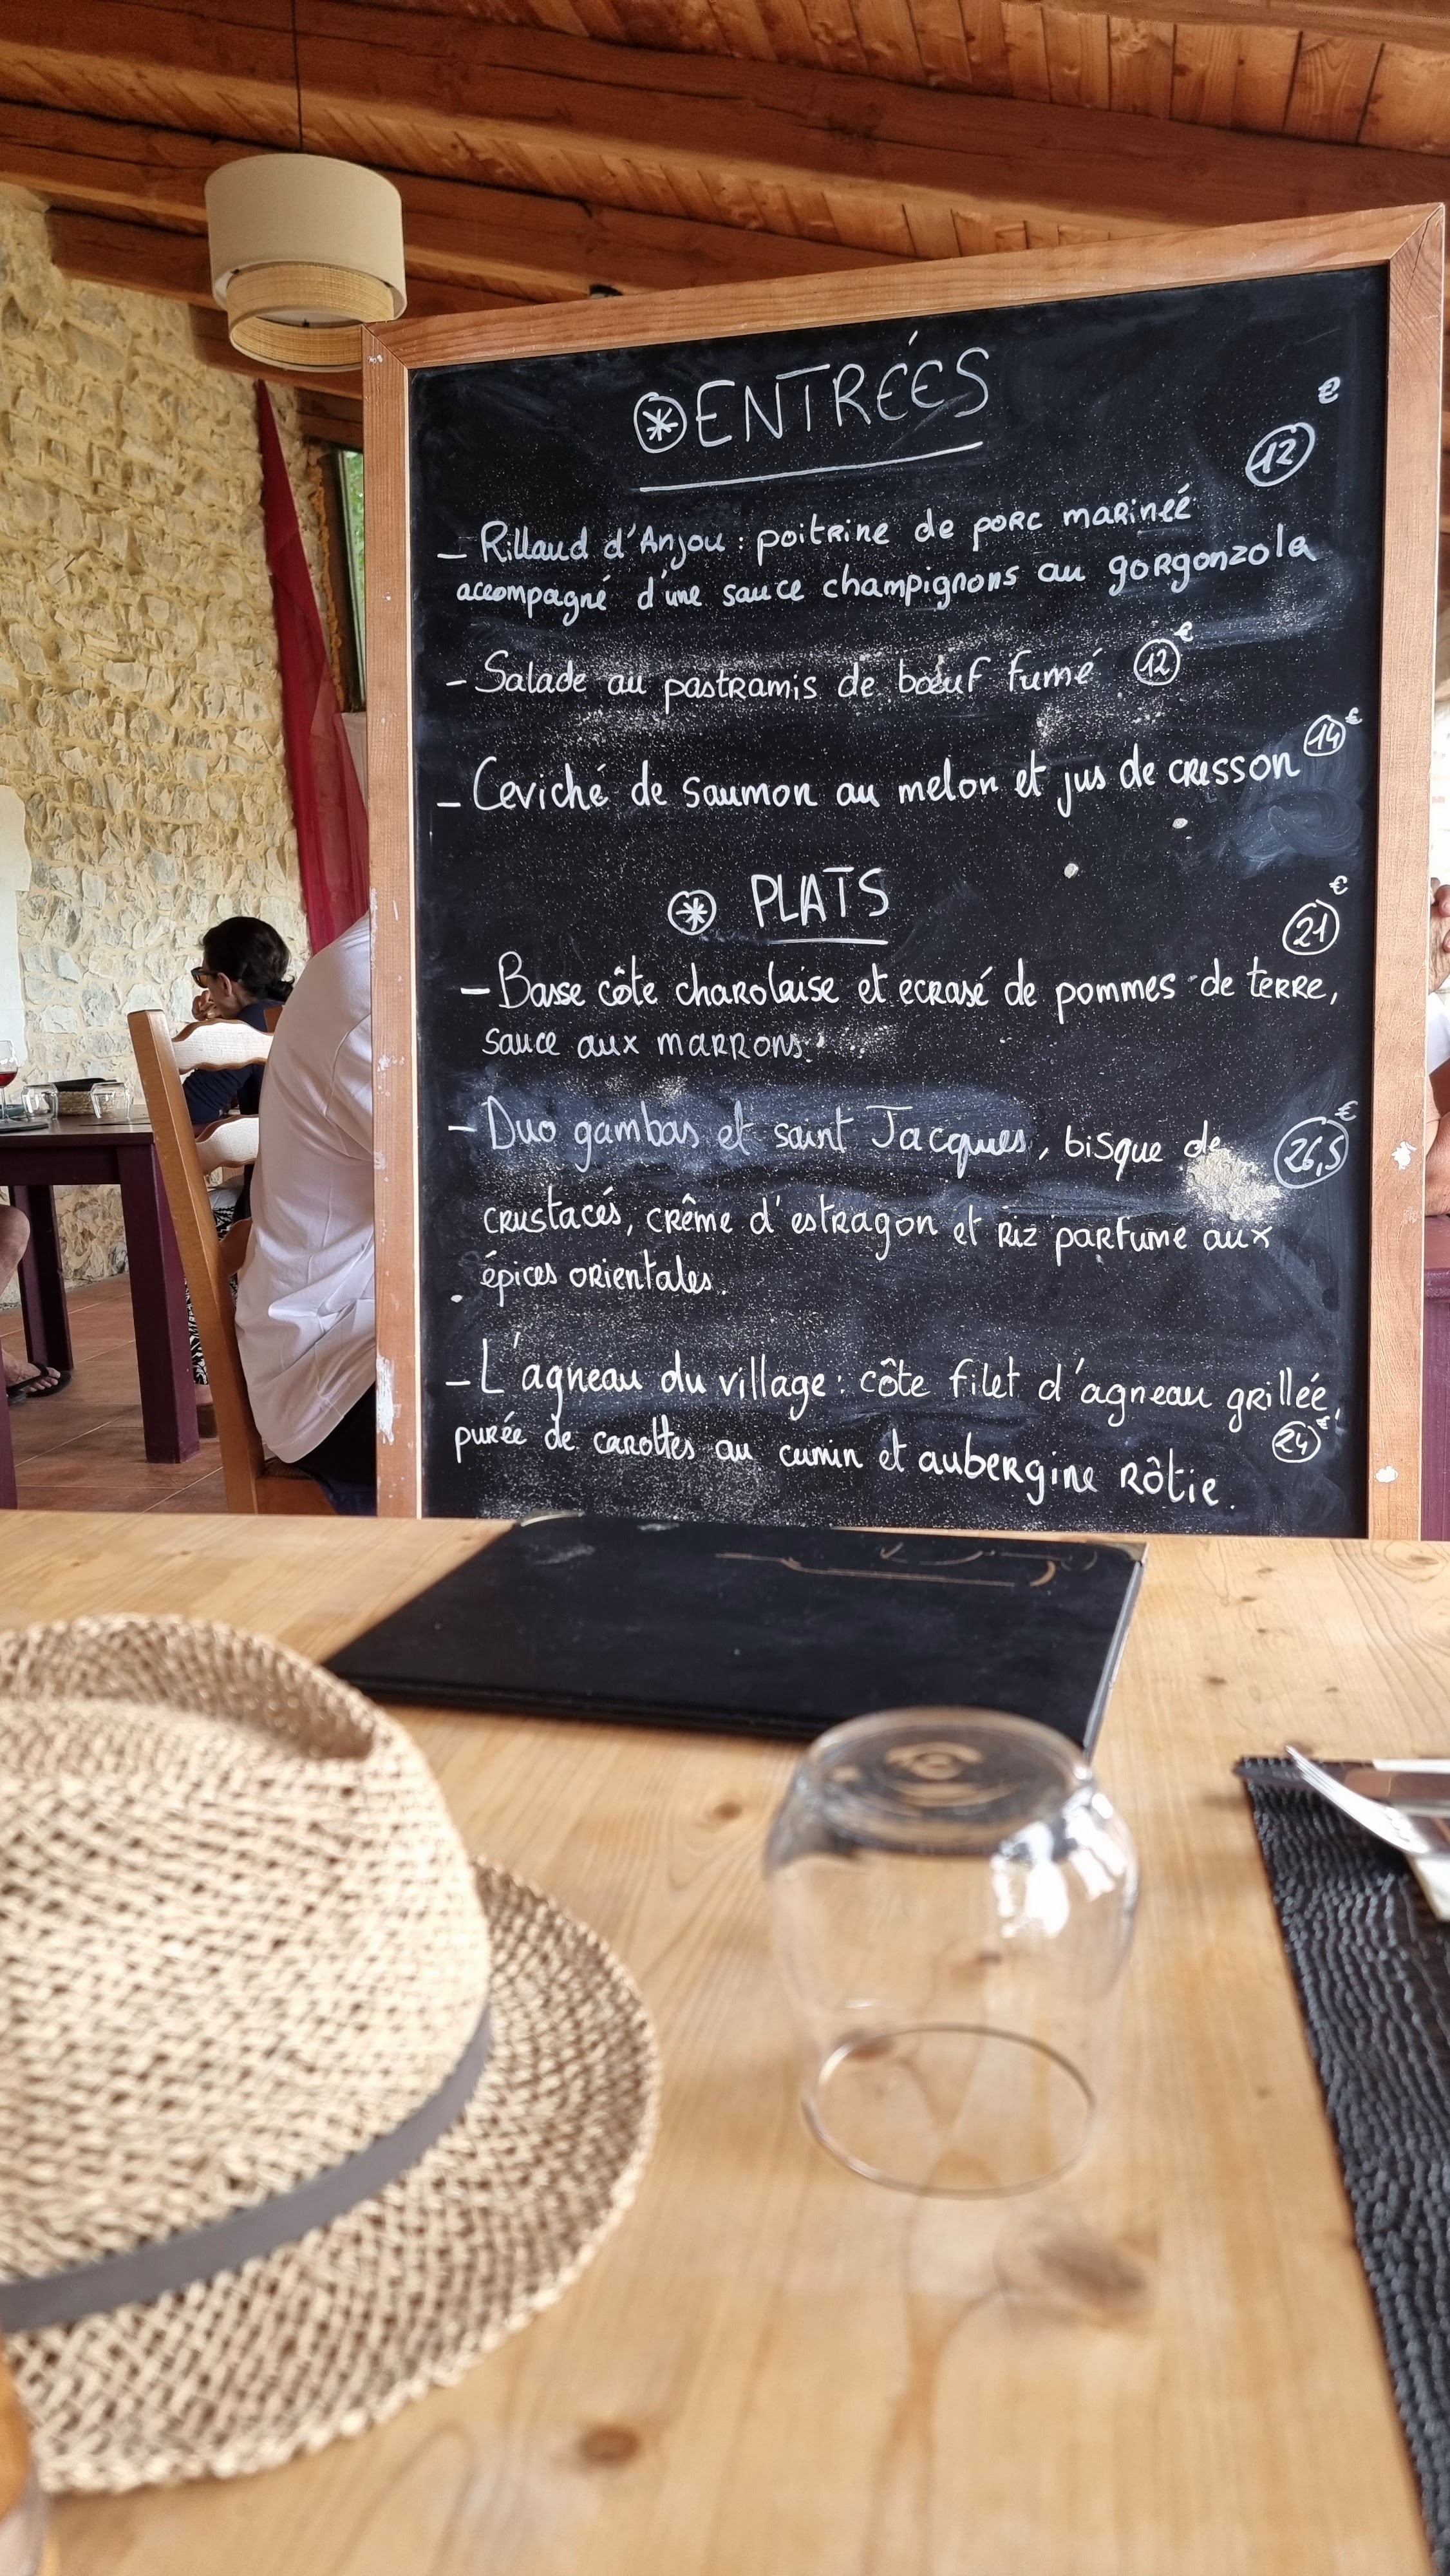 ENTRÉES
€
12
- Rillaud d'Anjou : poitrine de porc marineé
accompagné d'une sauce champignons au gorgonzola
- Salade au pastramis de bœuf fumé 12 €
- Ceviché de saumon au melon et jus de cresson 14 €
PLATS
€
21
- Basse côte charolaise et ecrasé de pommes de terre,
sauce aux marrons.
- Duo gambas et saint Jacques, bisque de 26,5 €
crustacés, crême d'estragon et riz parfume aux
épices orientales.
- L'agneau du village : côte filet d'agneau grilleé,
purée de carottes au cumin et aubergine rôtie. 24 €